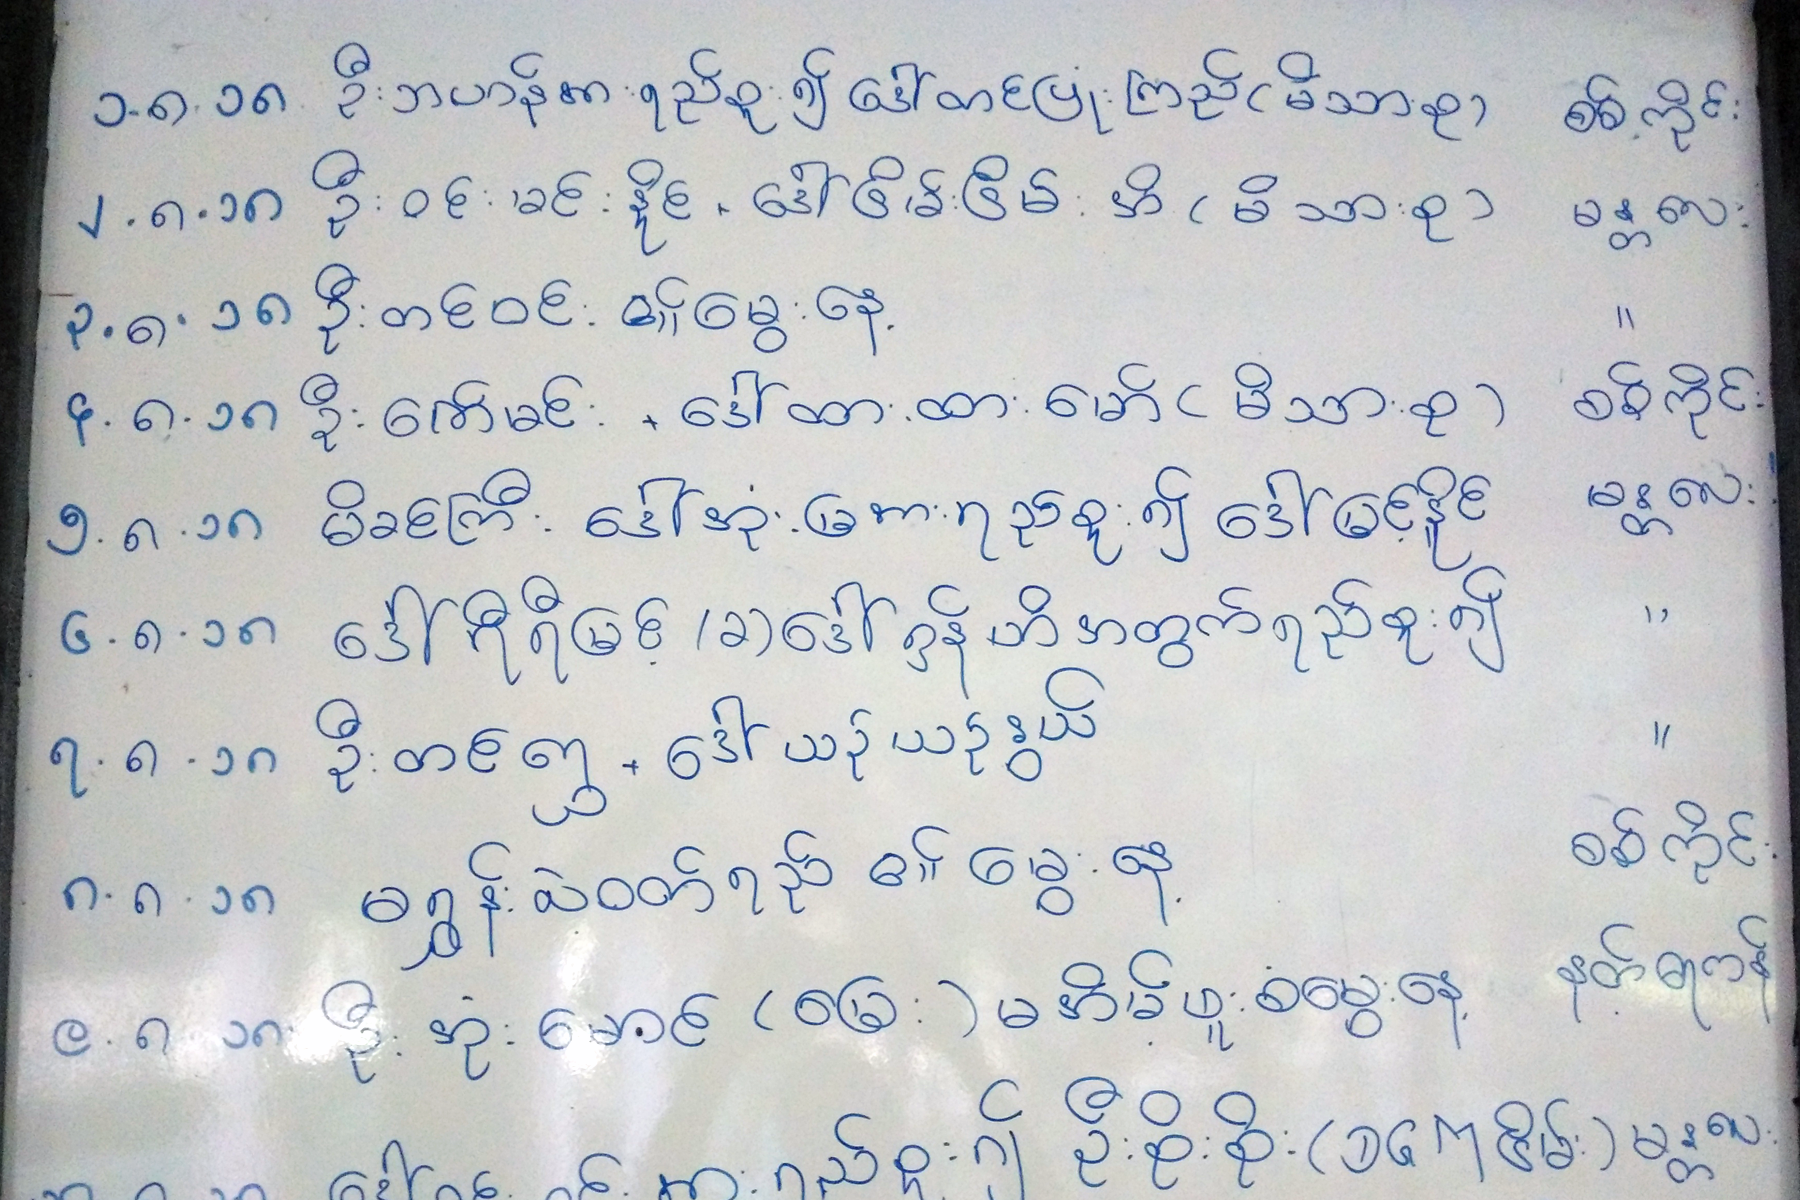 ၁.၈.၁၈ ဦးဘဟန်အားရည်စူး၍ ဒေါ်တင်မြုံးကြည် (မိသားစု) စစ်ကိုင်း
၂.၈.၁၈ ဦးဝင်းမင်းနိုင် + ဒေါ်ငြိမ်းငြိမ်းအိ (မိသားစု) မန္တလေး
၃.၈.၁၈ ဦးတင်ဝင်း ၏ မွေးနေ့ "
၄.၈.၁၈ ဦးကျော်မင်း + ဒေါ်ထားထားမော် (မိသားစု) စစ်ကိုင်း
၅.၈.၁၈ မိခင်ကြီး ဒေါ်အုံးမြအားရည်စူး၍ ဒေါ်မြင့်နိုင် မန္တလေး
၆.၈.၁၈ ဒေါ်ကြီးမြင့် (ခ) ဒေါ်ဂွန်ဟီအတွက်ရည်စူး၍ "
၇.၈.၁၈ ဦးတင်ဌေး + ဒေါ်ယဉ်ယဉ်နွယ် "
၈.၈.၁၈ မရွှန်းလဲ့ဝတ်ရည် ၏ မွေးနေ့ စစ်ကိုင်း
၉.၈.၁၈ ဦးအုံးမောင် (ဝမြေး) မအိမ့်ဖူးစံမွေးနေ့ နတ်ရေကန်
အားရည်စူး၍ ဦးစိုးစိုး (၁၄၆ ငြိမ်း) မန္တလေး